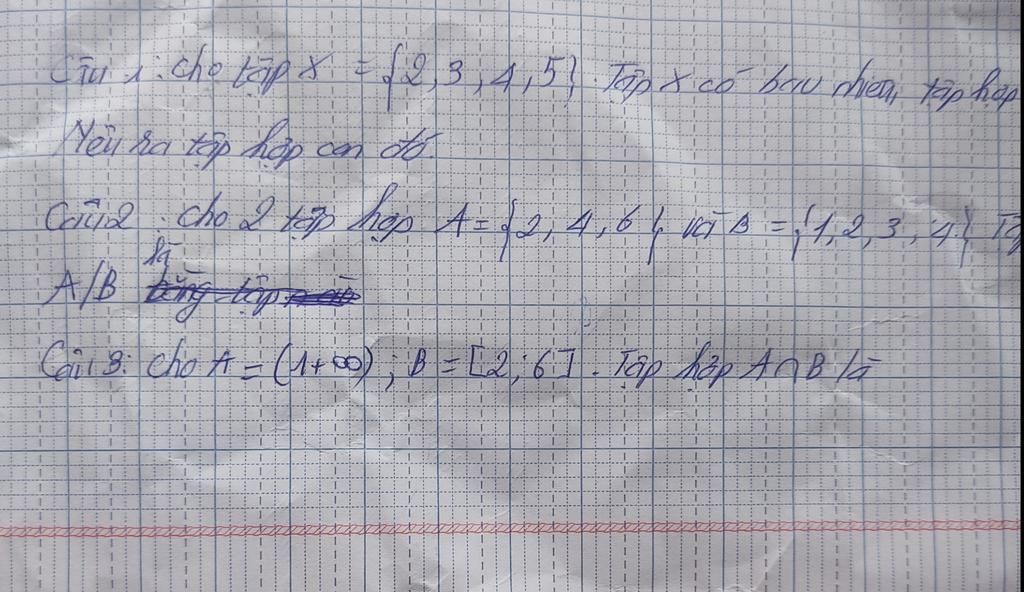 Câu 1: cho tập X = {2, 3, 4, 5}. Tập X có bau nhiêu tập hợp
Nêu ra tập hợp con đó.
Câu 2: cho 2 tập hợp A = {2, 4, 6} và B = {1, 2, 3, 4}
là
A/B
Câu 3: cho A = (1+∞); B = [2; 6]. Tập hợp A∩B là